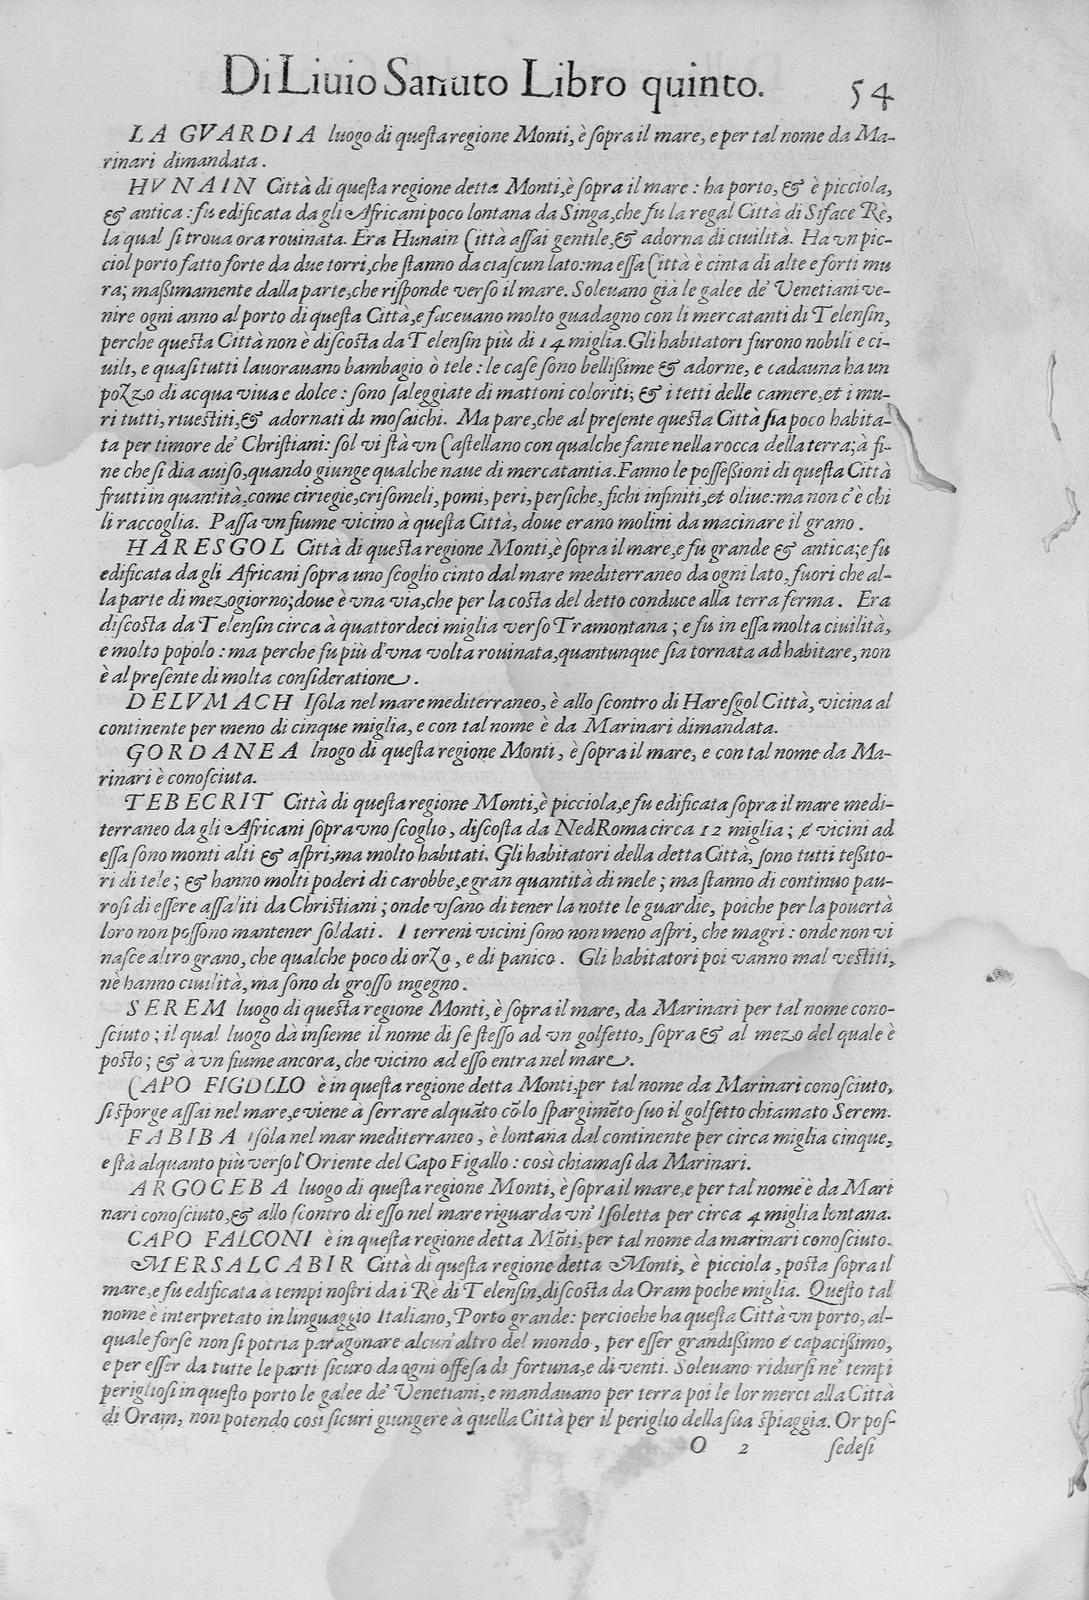 Di Liuio Sanuto Libro quinto. 54
LA GVARDIA luogo di questa regione Monti, è sopra il mare, e per tal nome da Ma-
rinari dimandata.
HVNAIN Città di questa regione detta Monti, è sopra il mare: ha porto, & è picciola,
& antica: fu edificata da gli Africani poco lontana da Singa, che fu la regal Città di Siface Rè,
la qual si troua ora rouinata. Era Hunain Città assai gentile, & adorna di ciuilità. Ha vn pic-
ciol porto fatto forte da due torri, che stanno da ciascun lato: ma essa Città è cinta di alte e forti mu
ra; maßimamente dalla parte, che risponde verso il mare. Soleuano già le galee de' Venetiani ve-
nire ogni anno al porto di questa Città, e faceuano molto guadagno con li mercatanti di Telensin,
perche questa Città non è discosta da Telensin più di 14 miglia. Gli habitatori furono nobili e ci-
uili, e quasi tutti lauorauano bambagio ò tele: le case sono bellissime & adorne, e cadauna ha un
pozzo di acqua viua e dolce: sono saleggiate di mattoni coloriti; & i tetti delle camere, et i mu-
ri tutti, riuestiti, & adornati di mosaichi. Ma pare, che al presente questa Città sia poco habita-
ta per timore de' Christiani: sol vi stà vn Castellano con qualche fante nella rocca della terra; à fi-
ne che si dia auiso, quando giunge qualche naue di mercatantia. Fanno le possessioni di questa Città
frutti in quantità, come ciriegie, crisomeli, pomi, peri, persiche, fichi infiniti, et oliue: ma non c'è chi
li raccoglia. Passa vn fiume vicino à questa Città, doue erano molini da macinare il grano.
HARESGOL Città di questa regione Monti, è sopra il mare, e fu grande & antica; e fu
edificata da gli Africani sopra uno scoglio cinto dal mare mediterraneo da ogni lato, fuori che al-
la parte di mezogiorno; doue è vna via, che per la costa del detto conduce alla terra ferma. Era
discosta da Telensin circa à quattordeci miglia verso Tramontana; e fu in essa molta ciuilità,
e molto popolo: ma perche fu più d'vna volta rouinata, quantunque sia tornata ad habitare, non
è al presente di molta consideratione.
DELVMACH Isola nel mare mediterraneo, è allo scontro di Haresgol Città, vicina al
continente per meno di cinque miglia, e con tal nome è da Marinari dimandata.
GORDANEA lnogo di questa regione Monti, è sopra il mare, e con tal nome da Ma-
rinari è conosciuta.
TEBECRIT Città di questa regione Monti, è picciola, e fu edificata sopra il mare medi-
terraneo da gli Africani sopra vno scoglio, discosta da NedRoma circa 12 miglia; e vicini ad
essa sono monti alti & aspri, ma molto habitati. Gli habitatori della detta Città, sono tutti teßito-
ri di tele; & hanno molti poderi di carobbe, e gran quantità di mele; ma stanno di continuo pau-
rosi di essere assaliti da Christiani; onde vsano di tener la notte le guardie, poiche per la pouertà
loro non possono mantener soldati. I terreni vicini sono non meno aspri, che magri: onde non vi
nasce altro grano, che qualche poco di orzo, e di panico. Gli habitatori poi vanno mal vestiti,
nè hanno ciuilità, ma sono di grosso ingegno.
SEREM luogo di questa regione Monti, è sopra il mare, da Marinari per tal nome cono-
sciuto; il qual luogo dà insieme il nome di se stesso ad vn golfetto, sopra & al mezo del quale è
posto; & à vn fiume ancora, che vicino ad esso entra nel mare.
CAPO FIGOLLO è in questa regione detta Monti, per tal nome da Marinari conosciuto,
si sporge assai nel mare, e viene à serrare alquãto cõ lo spargimẽto suo il golfetto chiamato Serem.
FABIBA isola nel mar mediterraneo, è lontana dal continente per circa miglia cinque,
e stà alquanto più verso l'Oriente del Capo Figallo: così chiamasi da Marinari.
ARGOCEBA luogo di questa regione Monti, è sopra il mare, e per tal nome è da Mari
nari conosciuto, & allo scontro di esso nel mare riguarda vn' Isoletta per circa 4 miglia lontana.
CAPO FALCONI è in questa regione detta Mõti, per tal nome da marinari conosciuto.
MERSALCABIR Città di questa regione detta Monti, è picciola, posta sopra il
mare, e fu edificata à tempi nostri da i Rè di Telensin, discosta da Oram poche miglia. Questo tal
nome è interpretato in linguaggio Italiano, Porto grande: percioche ha questa Città vn porto, al-
quale forse non si potria paragonare alcun' altro del mondo, per esser grandißimo e capacißimo,
e per esser da tutte le parti sicuro da ogni offesa di fortuna, e di venti. Soleuano ridursi ne' tempi
perigliosi in questo porto le galee de' Venetiani, e mandauano per terra poi le lor merci alla Città
di Oram, non potendo così sicuri giungere à quella Città per il periglio della sua spiaggia. Or pos-
O 2 sedesi